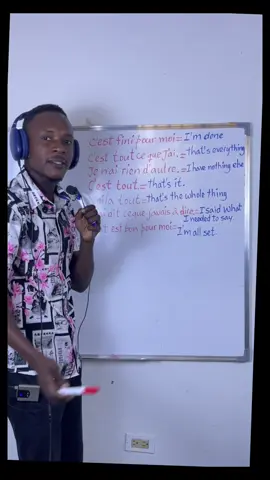 C'est fini pour moi = I'm done
C'est tout ce que j'ai. = that's everything
Je n'ai rien d'autre. = I have nothing else
C'est tout = That's it.
tout = That's the whole thing
ce que j'avais à dire = I said what
I needed to say.
est bon pour moi =
I'm all set